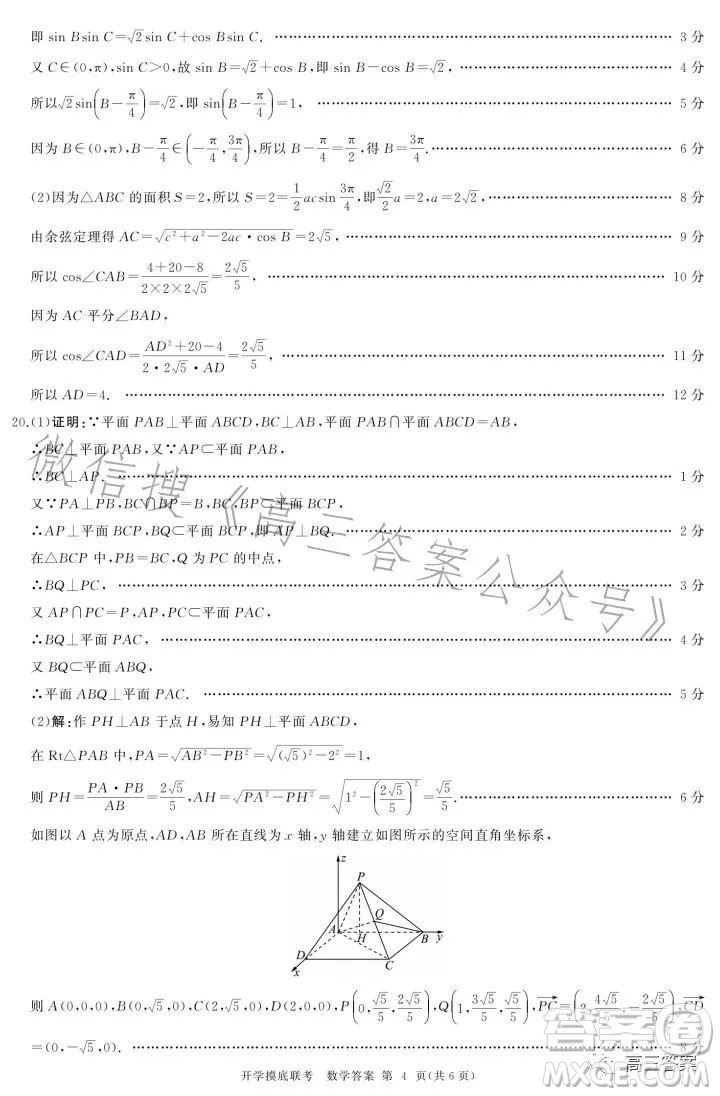 即 sin Bsin C=√2sin C+cos Bsin C. …… 3 分
又 C∈(0,π),sin C>0,故 sin B=√2+cos B,即 sin B−cos B=√2, …… 4 分
所以√2sin(B−π/4)=√2,即 sin(B−π/4)=1, …… 5 分
因为 B∈(0,π),B−π/4∈(−π/4,3π/4),所以 B−π/4=π/2,得 B=3π/4. …… 6 分
(2)因为△ABC 的面积 S=2,所以 S=2=1/2 acsin 3π/4,即√2/2 a=2,a=2√2, …… 8 分
由余弦定理得 AC=√(c²+a²−2ac•cos B)=2√5, …… 9 分
所以 cos∠CAB=(4+20−8)/(2×2×2√5)=2√5/5, …… 10 分
因为 AC 平分∠BAD,
所以 cos∠CAD=(AD²+20−4)/(2•2√5•AD)=2√5/5, …… 11 分
所以 AD=4. …… 12 分
20.(1)证明:∵平面 PAB⊥平面 ABCD,BC⊥AB,平面 PAB∩平面 ABCD=AB,
∴BC⊥平面 PAB,又∵AP⊂平面 PAB,
∴BC⊥AP. …… 1 分
又∵PA⊥PB,BC∩BP=B,BC,BP⊂平面 BCP,
∴AP⊥平面 BCP,BQ⊂平面 BCP,即 AP⊥BQ. …… 2 分
在△BCP 中,PB=BC,Q 为 PC 的中点,
∴BQ⊥PC, …… 3 分
又 AP∩PC=P,AP,PC⊂平面 PAC,
∴BQ⊥平面 PAC, …… 4 分
又 BQ⊂平面 ABQ,
∴平面 ABQ⊥平面 PAC. …… 5 分
(2)解:作 PH⊥AB 于点 H,易知 PH⊥平面 ABCD,
在 Rt△PAB 中,PA=√(AB²−PB²)=√((√5)²−2²)=1,
则 PH=PA•PB/AB=2√5/5,AH=√(PA²−PH²)=√(1²−(2√5/5)²)=√5/5. …… 6 分
如图以 A 点为原点,AD,AB 所在直线为 x 轴,y 轴建立如图所示的空间直角坐标系,
z
P
Q
A
H
B
y
D
C
x
则 A(0,0,0),B(0,√5,0),C(2,√5,0),D(2,0,0),P(0,√5/5,2√5/5),Q(1,3√5/5,√5/5),PC=(2,4√5/5,−2√5/5),CD
=(0,−√5,0). …… 8 分
开学摸底联考 数学答案 第 4 页(共 6 页)
微信搜《高三答案公众号》
答案圈
高三答案